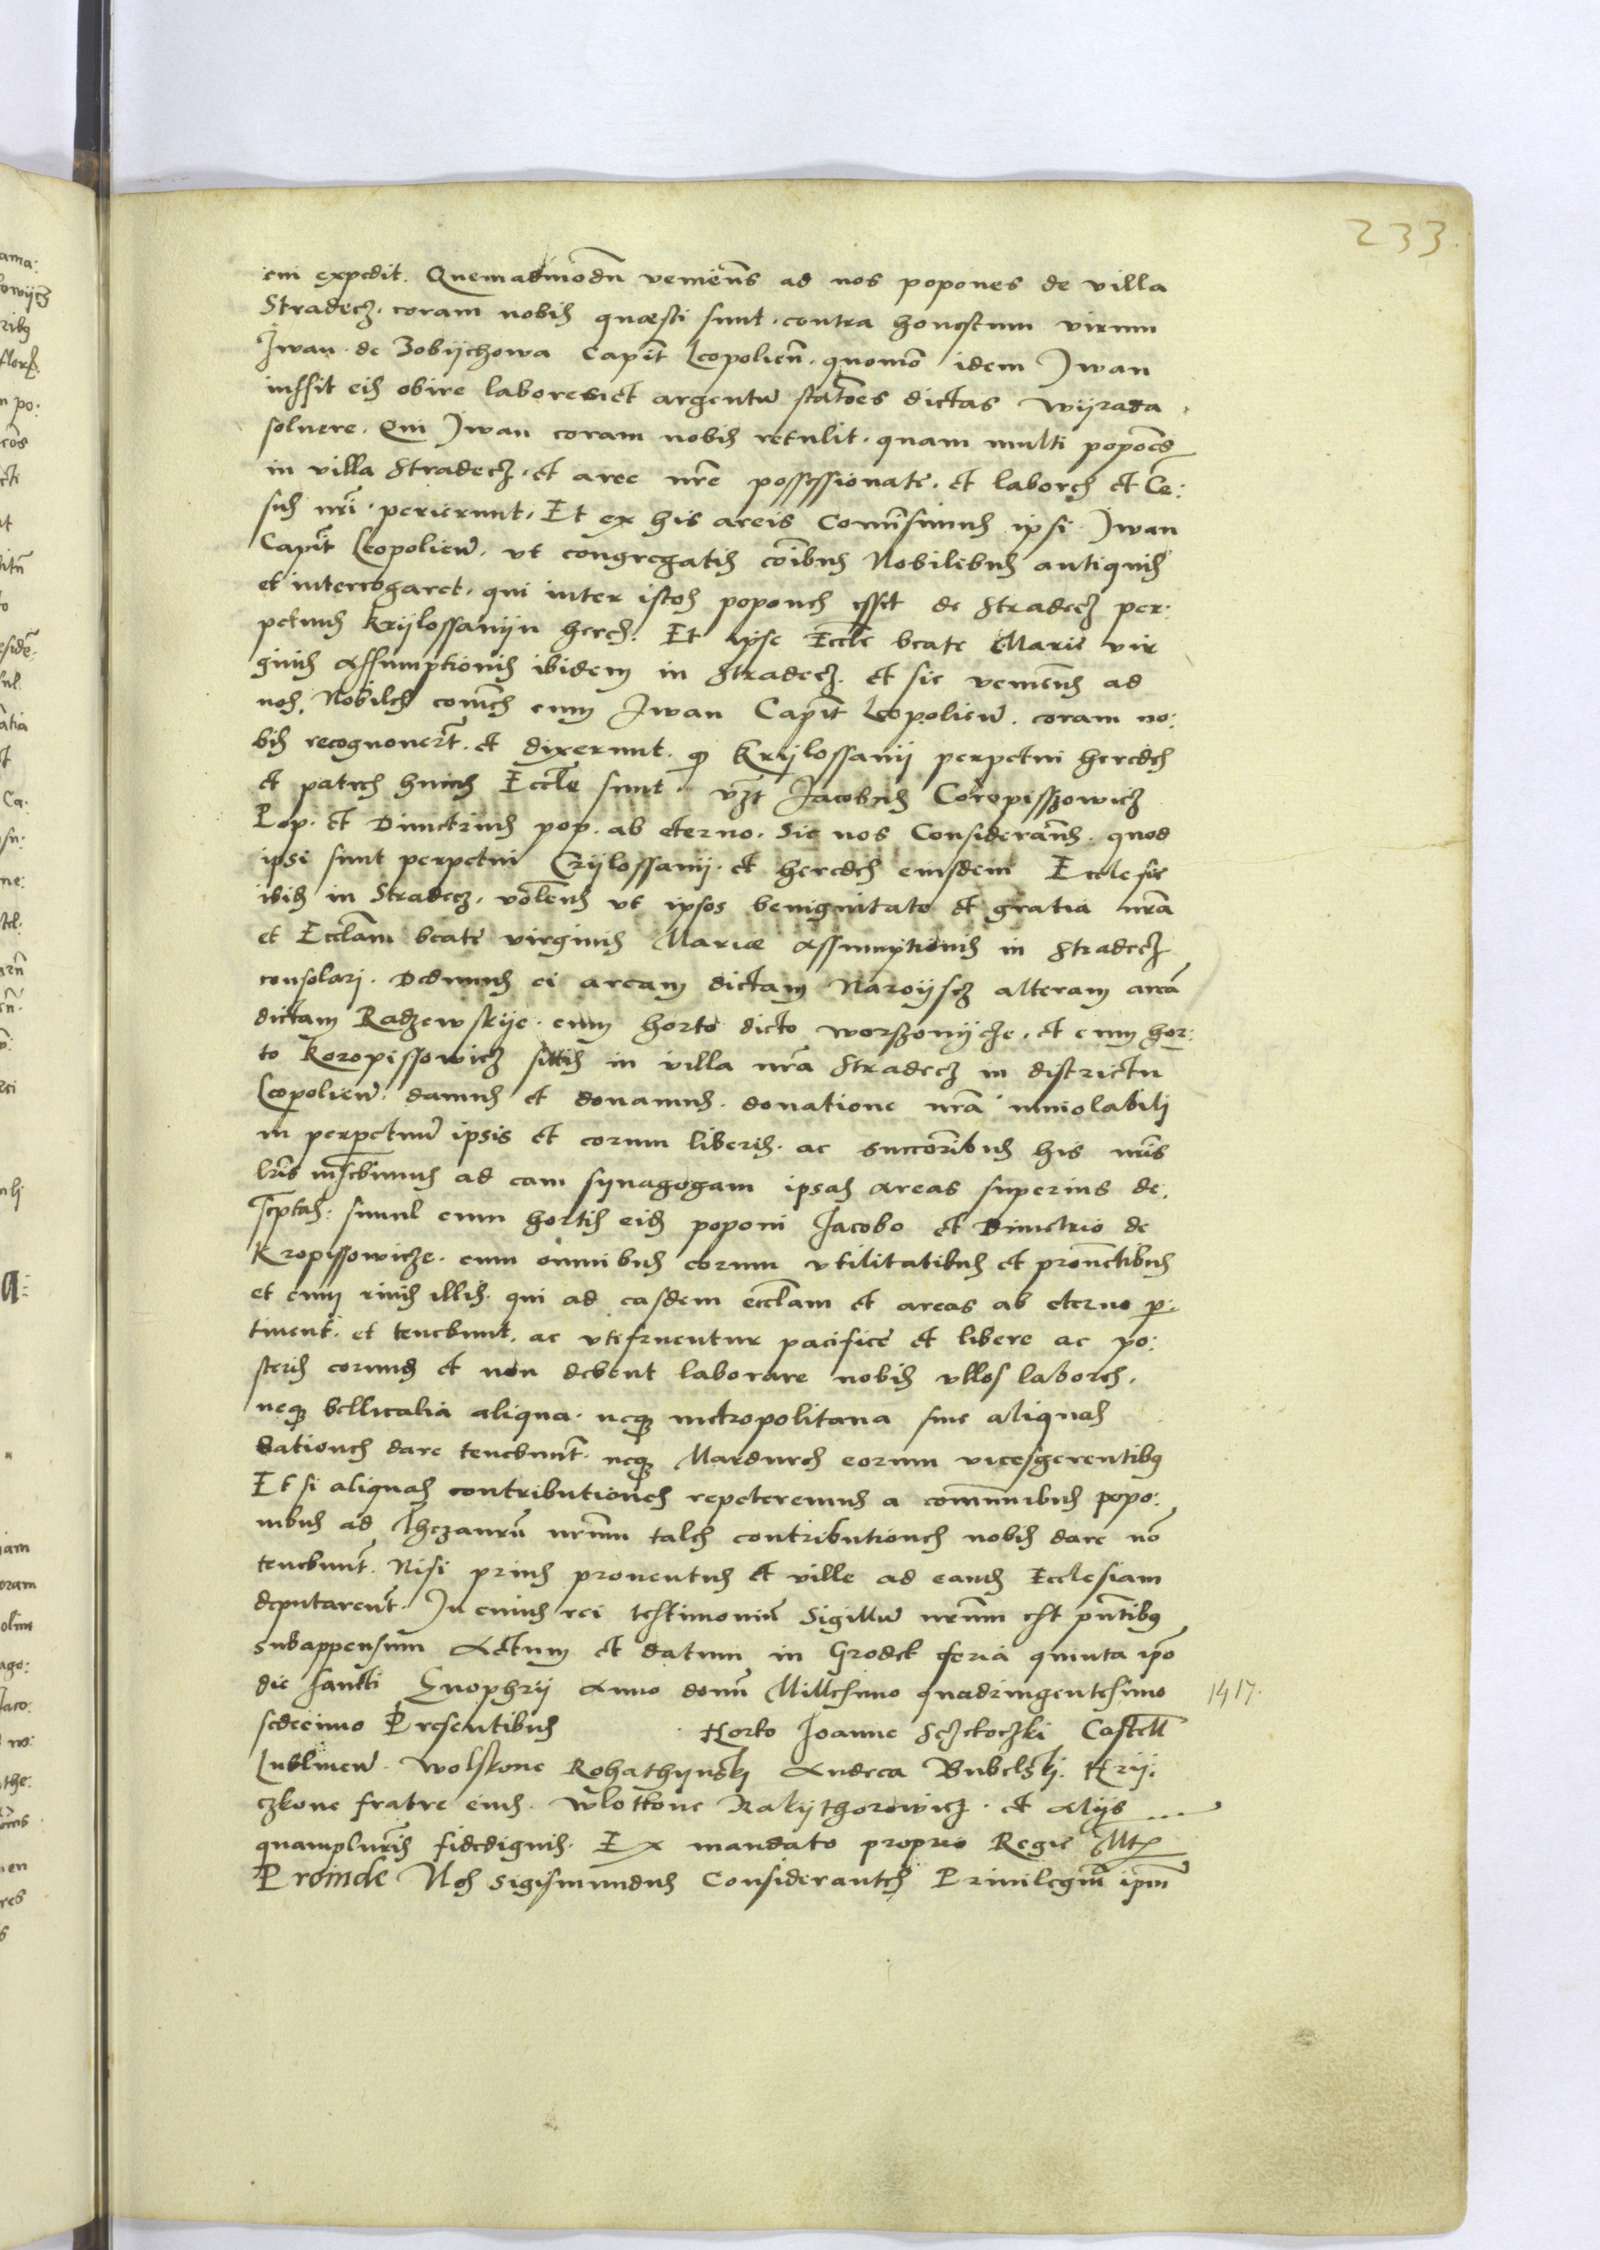 233.
cui expedit. Quemadmodũ venieñs ad nos popones de villa
Stradecz. coram nobis quæsti sunt. contra honestum virum
Iwan. de Zobijchowa Capit̃ Leopolieñ. quomõ idem Iwan
iussit eis obire labores et argentũ stat̃oes dictas wijzada
soluere. Qui Iwan coram nobis retulit. quam multi popoñes
in villa Stradecz. et aree nr̃e possessionate. et labores et Cẽ:
sus nr̃i. perierunt. Et ex his areis Com̃isimus ipsi. Iwan
Capit̃ Leopolieñ. vt congregatis com̃ibus Nobilibus antiquis
et interrogaret. qui inter istos popones esset de Stradecz per:
petuus krijlossanijn heres. Et ipse Eccl̃e beate Marie vir
ginis Assumptionis ibidem in Stradecz. et sic venieñs ad
nos. Nobiles com̃es cum Iwan Capit̃ Leopolieñ. coram no:
bis recognouer̃t. et dixerunt. q̃ Krijlossanij perpetui heredes
et patres huius Eccl̃e sunt. vz̃t Iacobus Coropisszowicz
Pop. et Dimetrius pop. ab eterno. Sic nos Considerañs. quod
ipsi sunt perpetui Crijlossanij. et heredes eiusdem Ecclesie
ibid̃ in Stradecz. voleñs vt ipsos benignitate et gratia nr̃a
et Eccl̃am beate virginis Mariæ Assumptionis in Stradecz
consolari. Dedimus ei aream dictam Naroijscz alteram areã
dictam Radzewskije. cum horto dicto worszonijcze. et cum hor:
to koropissowicz sittis in villa nr̃a Stradecz in districtu
Leopolieñ. damus et donamus. donatione nr̃a inuiolabili
in perpetuũ ipsis et eorum liberis. ac succor̃ibus his nr̃is
lr̃is inscr̃ibimus ad eam sijnagogam ipsas areas superius de:
scr̃ptas: simul cum hortis eis poponi Iacobo et Dimetrio de
Kropissowicze. cum om̃nibus eorum vtilitatibus et prouẽtibus
et cum iuris illis. qui ad easdem eccl̃am et areas ab eterno p̱:
tinent. et tenebunt. ac vtifruentur pacifice et libere ac po:
steris eorumd̃ et non debent laborare nobis vllos labores.
neqȝ bellicalia aliqua. neqȝ metropolitana siue aliquas
dationes dare tenebunt̃. neqȝ Mardures eorum vicesgerentibȝ
Et si aliquas contributiones repeteremus a com̃unibus popo:
nibus ad Thezaurũ nr̃um tales contributiones nobis dare nõ
tenebunt̃. Nisi prius prouentus et ville ad eand̃ Ecclesiam
deputarent̃. In cuius rei testimoniũ Sigillũ nr̃um est pñtibȝ
subappensum Actum et datum in Grodek feria quinta ip̃o
die sancti Enophrij Anno domĩ Millesimo quadringentesimo
1417.
sedecimo Presentibus Horko Ioanne Sczekoczki Castell̃
Lublineñ. wolskone Rohathijnskj Andrea Bubelskj. Krij:
czkone fratre eius. wlotkone Rakijthorowicz. et alijs
quampluri͂s fidedignis. Ex mandato proprio Regie Mt̃i
Proinde Nos Sigismundus Considerantes Priuilegiũ ip̃m̃